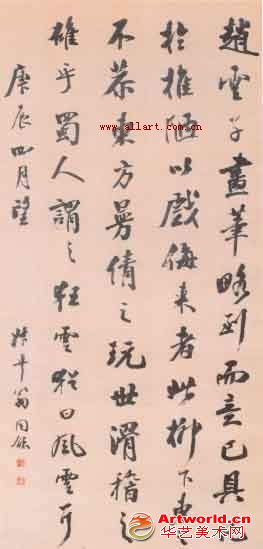 趙雲子畫筆略到而意已具託
於椎陋以戲侮來者此柳下惠
不恭東方曼倩之玩世滑稽之
雄乎蜀人謂之狂雲猶曰風雲耳
庚辰四月望
叔平翁同龢
www.allart.com.cn
Artworld.cn
华艺美术网